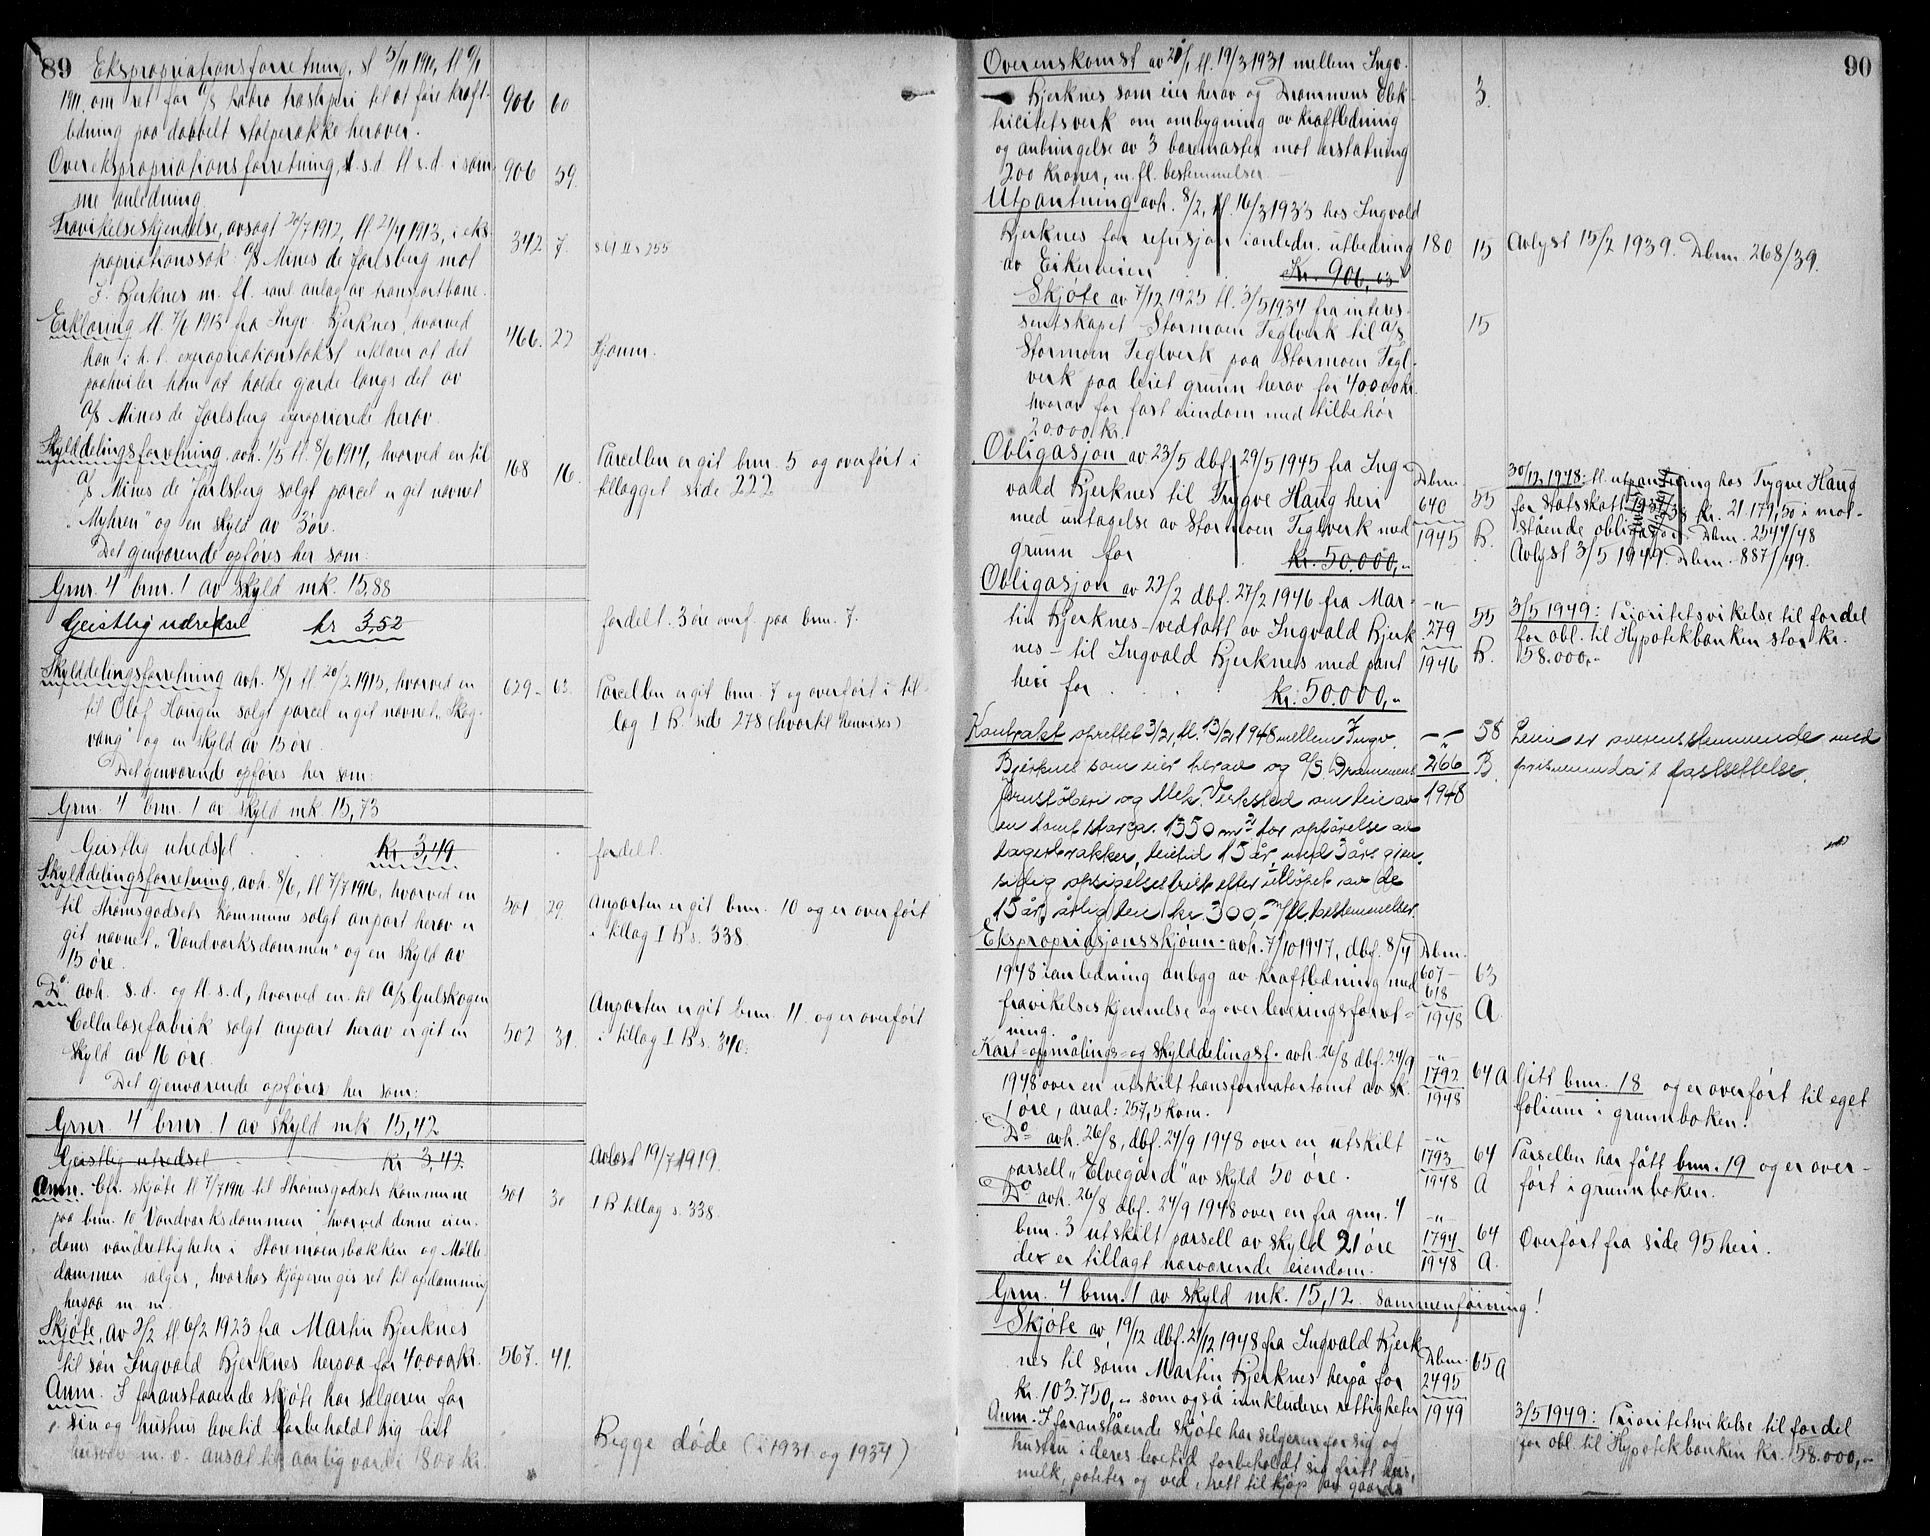 89
Ekspropriationsforretning, 
1911, om ret for A/S Labro træsliperi til at føre kraft-
ledning paa dobbelt stolperække herover. 906 60
Overekspropriationsforretning, s.d. tl s.d. i sam- 906 59.
me anledning
Fravikelseskjendelse, avsagt 20/7 1912, tl 1913, i eks- 342 7.
propriationssak A/S Mines de Jarlsberg mot
I. Bjerknes m. fl. ianl anlæg av transportbane.
Erklæring tl. 7/6 1913 fra Ingv. Bjerknes, hvorved 466. 22
han i h. t. expropriationstakst erklærer at det
paahviler ham at holde gjærde langs det av
A/S Mines de Jarlsberg exproprierede herav.
Skylddelingsforretning, avh. 1/5 tl. 8/6 1914, hvorved en til 168 16.
A/S Mines de Jarlsberg solgt parcel er git navnet
"Myhren" og en skyld av 3 øre. Parcellen er git brn. 5 og overført i
tillægget side 222
Det gjenværende opføres her som:
Grnr. 4 brnr. 1 av skyld mk. 15,88
Geistlig utredsel kr 3,52 fordelt. 3 øre overf. paa brn. 7.
Skylddelingsforretning avh. 18/1 tl 20/2 1915, hvorved en 629- 63.
til Olaf Haugen solgt parcel er git navnet "Skog-
vang" og en skyld av 15 øre.
Parcellen er git brn. 7 og overført i til-
læg I B. side 278 (hvortil henvises)
Det gjenværende opføres her som:
Grnr. 4 brnr. 1 av skyld mk 15,73
Geistlig utredsel Kr 3,49 fordelt.
Skylddelingsforretning, avh. 8/6, tl 7/7 1916, hvorved en
til Strømsgodsets kommune solgt anpart herav er 501 29.
git navnet "Vandværksdammen" og en skyld av
15 øre.
Anparten er git brn. 10 og er overført
i tillæg I B s. 338
Do avh. s.d. og tl s.d., hvorved en til A/S Gulskogen
Cellulosefabrik solgt anpart herav er git en 502 31.
skyld av 16 øre.
Anparten er git brn. 11. og er overført
i tillæg I B s. 340.
Det gjenværende opføres her som:
Grnr. 4 brnr. 1 av skyld mk 15,42
Geistlig utredsel kr 3,42. Avløst 19/7 1919.
Anm. Cfr. skjøte tl 7/7 1916 til Strømsgodsets kommune 501 30
paa brn. 10 "Vandværksdammen", hvorved denne eien-
doms vandrettigheter i Storemoensbækken og Mølle-
dammen sælges, hvorhos kjøperen gis ret til opdæmning
herpaa m. m. I B tillæg s. 338.
Skjøte, av 3/2 tl 6/2 1923 fra Martin Bjerknes
til søn Ingvald Bjerknes herpaa for 40.000 kr. 567. 41.
Anm. I foranstaaende skjøte har sælgeren for
sin og hustrus levetid forbeholdt sig frit
husvær m. v. ansat til aarlig værdi 1800 kr.
Begge døde (i 1931 og 1934)
90
Overenskomst av 20/1 tl. 19/3 1931 mellem Ingv.
Bjerknes som eier herav og Drammens Elek- 3.
trisitetsverk om ombygning av kraftledning
og anbringelse av 3 bæremaster mot erstatning
200 kroner, m. fl. bestemmelser
Utpantning avh. 8/2, tl 16/3 1933 hos Ingvald
Bjerknes for refusjon i anledn. utbedring 180 15 Avlyst 15/2 1939. Dbnr. 268/39.
av Eikerveien Kr. 906,03
Skjøte av 7/12 1925 tl. 3/5 1934 fra interes-
sentskapet Stormoen Teglverk til A/S 15
Stormoen Teglverk paa Stormoen Tegl-
verk paa leiet grunn herav for 40000 kr.
hvorav for fast eiendom med tilbehør
20.000 kr.
Obligasjon av 23/5 dbf. 29/5 1945 fra Ing-
vald Bjerknes til Trygve Haug heri Dbnr. 640 55
med untagelse av Stormoen Teglverk med 1945 B.
grunn for Kr. 50.000,-
30/12 1948: tl. utpantning hos Trygve Haug
for statsskatt 1937/38 kr. 21 179,50 i mot-
stående obligasjon. Dbnr. 2544/48
Avlyst 3/5 1949. Dbnr. 887/49.
Obligasjon av 22/2 dbf. 27/2 1946 fra Mar-
tin Bjerknes - vedtatt av Ingvald Bjerk- 279 55
nes - til Ingvald Bjerknes med pant 1946 B.
heri for kr. 50.000,-
3/5 1949: Prioritetsvikelse til fordel
for obl. til Hypotekbanken stor kr.
58.000,-
Kontrakt oprettet 3/2, tl. 13/2 1948 mellem Ingv. 58
Bjerknes som eier herav og A/S Drammens 266 B
Jernstøberi og Mek. Verksted om leie av 1948
en tomt stor ca. 1350 m2 for opførelse av
lagerbrakker, leietid 15 år, med 3 års gjen-
sidig opsigelsesfrist efter utløpet av de
15 år, årlig leie kr. 300.- m/fl. bestemmelser.
Leien er overensstemmende med
prisnemnda's fastsettelse.
Ekspropriasjonsskjønn avh. 7/10 1947, dbf. 8/4 Dbnr.
1948 i anledning anlegg av kraftledning med 607- 63
fravikelseskjennelse og overleveringsforret- 618 1948 A
ning.
Kart-oppmålings- og skylddelingsf. avh. 26/8 dbf. 24/9
1948 over en utskilt transformatortomt av sk. 1792 1948 64 A
1 øre, areal: 257,5 kvm.
Gitt brn. 18 og er overført til eget
folium i grunnboken.
Do avh. 26/8, dbf. 24/9 1948 over en utskilt 1793 64
parsell "Elvegård" av skyld 50 øre. 1948 A
Parsellen har fått brn. 19 og er over-
ført i grunnboken.
Do avh. 26/8 dbf. 24/9 1948 over en fra grnr. 4
brn. 3 utskilt parsell av skyld 21 øre 1794 64
der er tillagt nærværende eiendom. 1948 A.
Overført fra side 95 heri.
Grnr. 4 brnr. 1 av skyld mk. 15,12. sammenføining!
Skjøte av 19/12 dbf. 21/12 1948 fra Ingvald Bjerk-
nes til sønn Martin Bjerknes herpå for Dbnr. 2495 65 A
kr. 103.750,- som også innkluderer rettigheter 1949
Anm. I foranstående skjøte har selgeren for sig og
hustru i deres levetid forbeholdt sig fritt hus,
melk, poteter og ved, rett til kjøp av gaards
3/5 1949: Prioritetsvikelse til fordel
for obl. til Hypotekbanken kr. 58.000,-